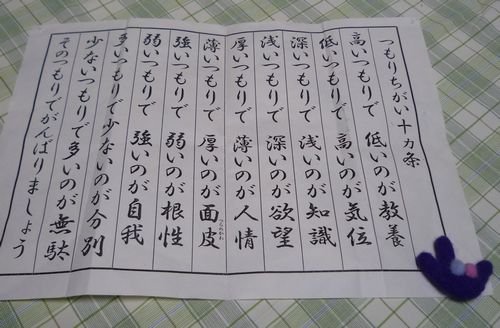 つもりちがい十カ条
高いつもりで 低いのが教養
低いつもりで 高いのが気位
深いつもりで 浅いのが知識
浅いつもりで 深いのが欲望
厚いつもりで 薄いのが人情
薄いつもりで 厚いのが面皮
強いつもりで 弱いのが根性
弱いつもりで 強いのが自我
多いつもりで少ないのが分別
少ないつもりで多いのが無駄
そのつもりでがんばりましょう